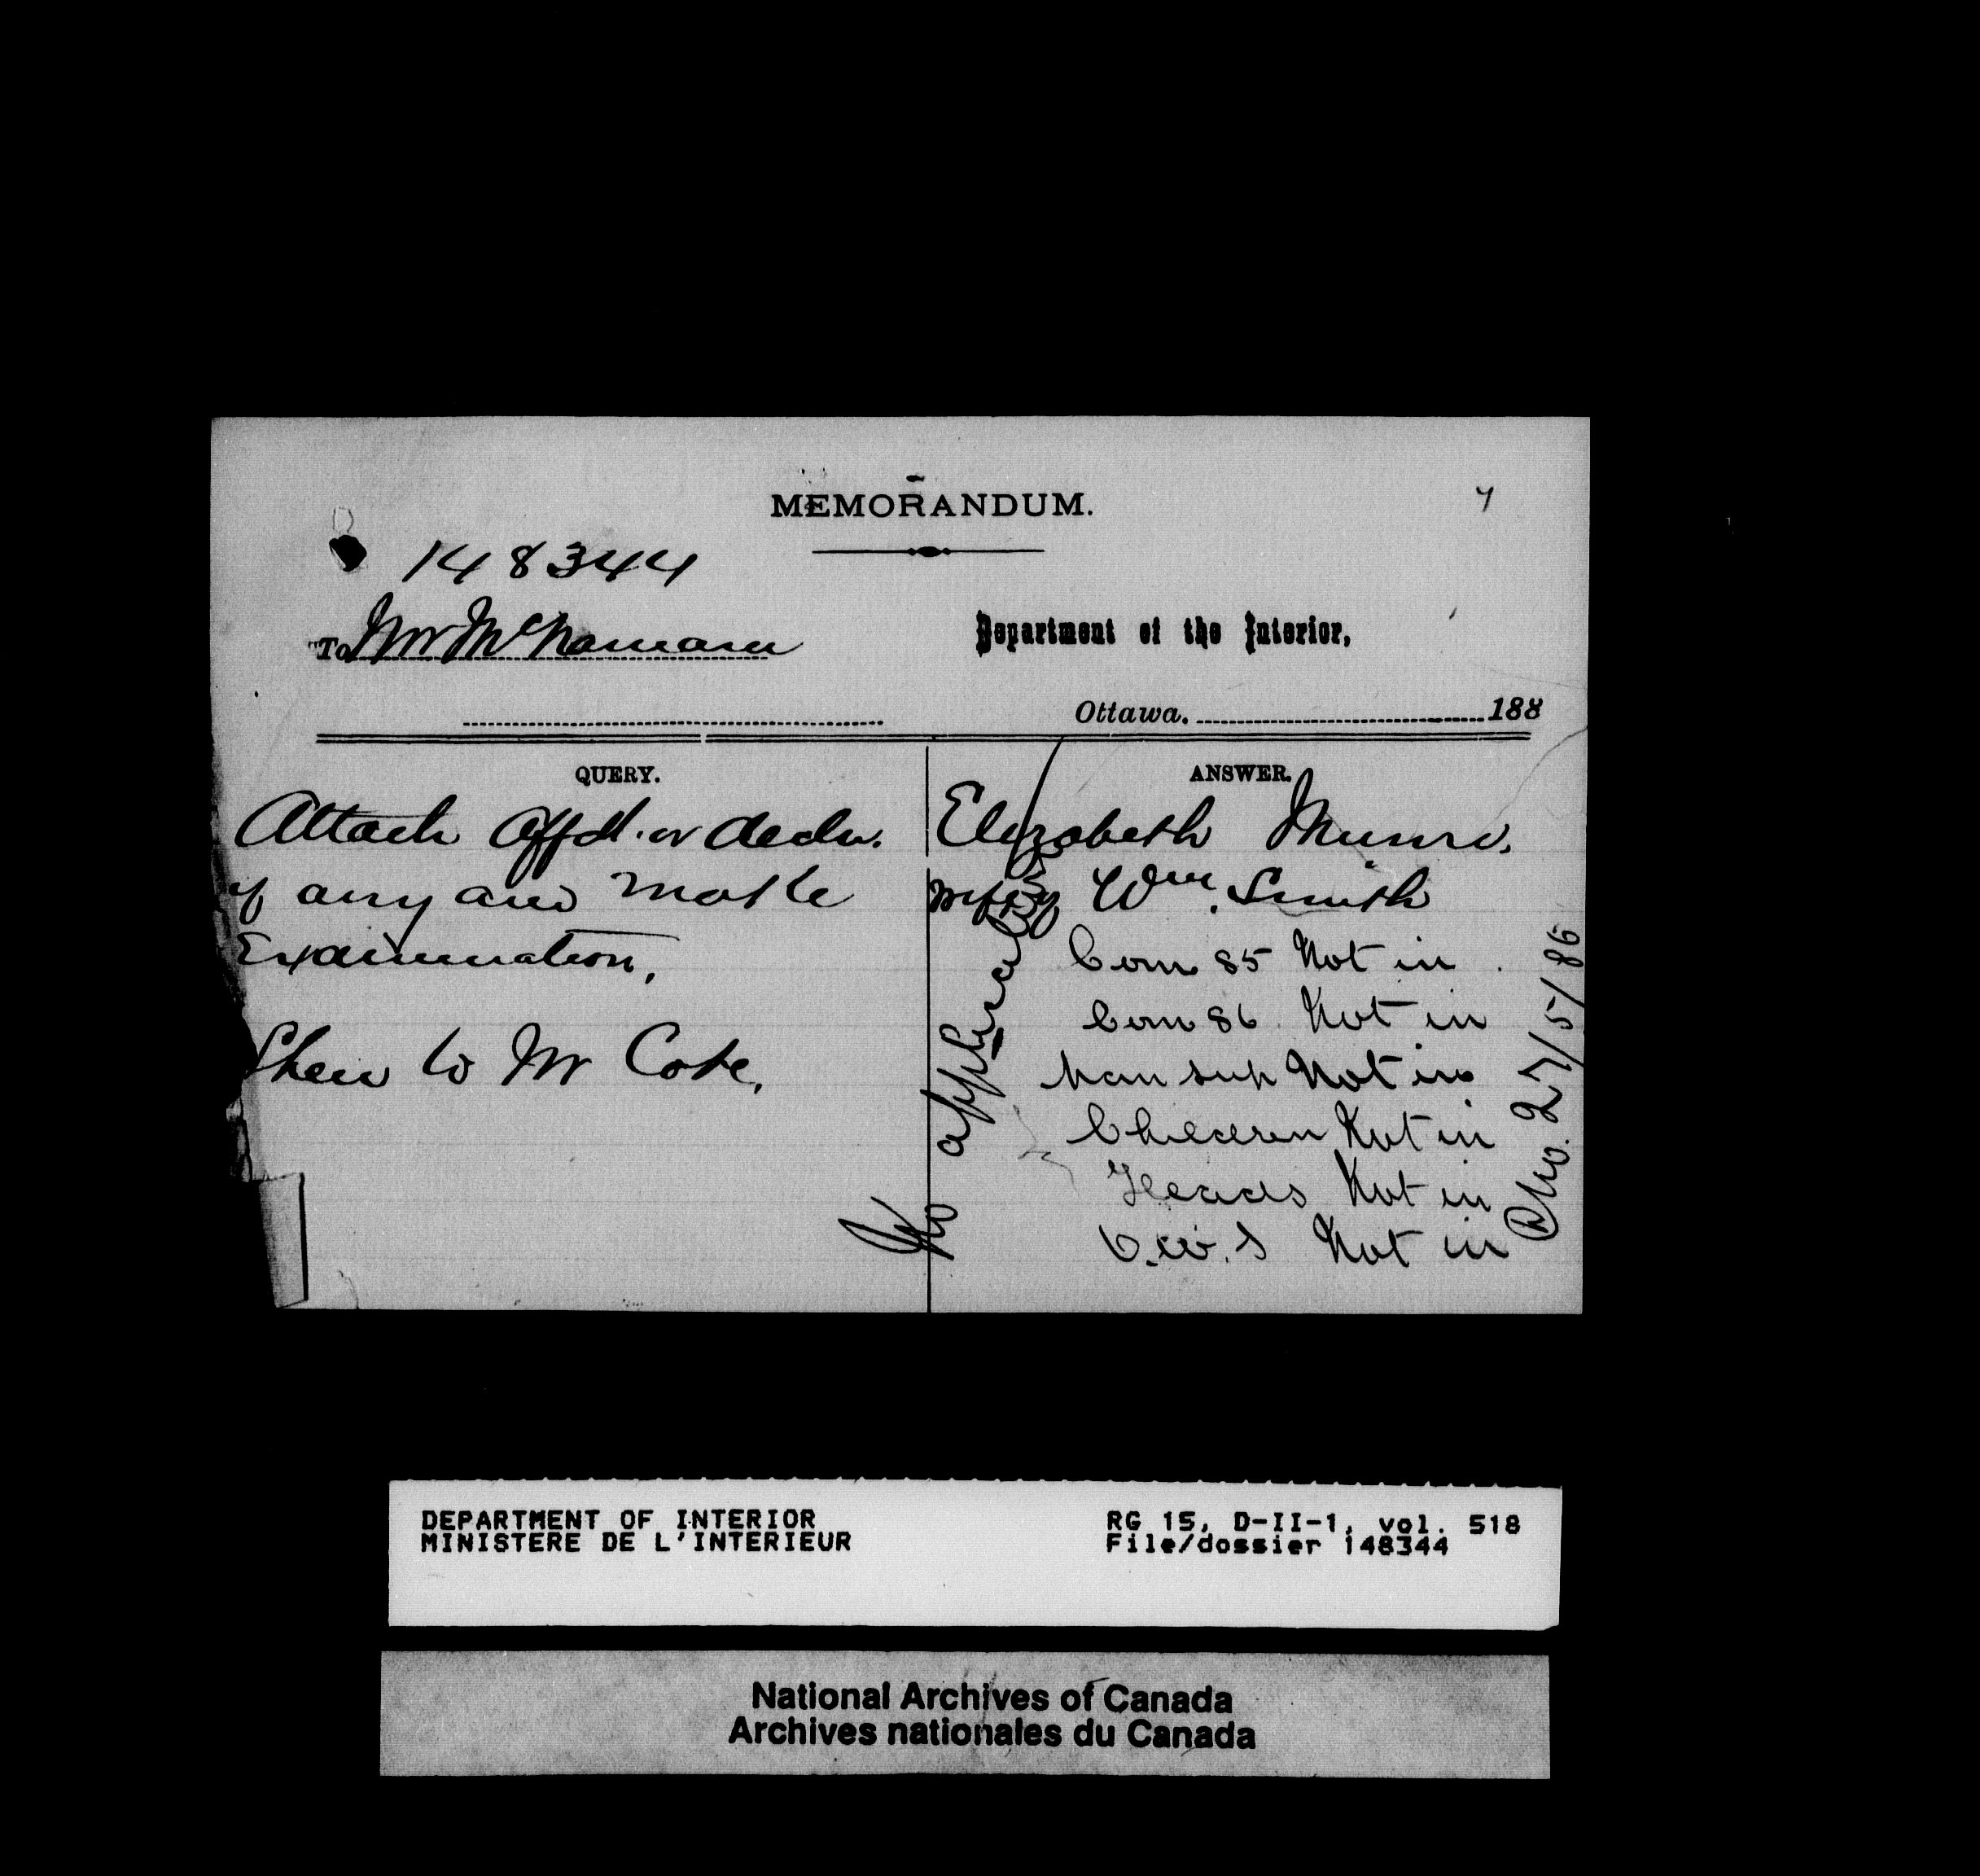 MEMORANDUM.
7
148344
To Mr McNamara
Department of the Interior,
Ottawa. 188
QUERY.
Attach Affdt. or decln.
if any and make
Examination.
Shew to Mr Cote.
ANSWER.
Elizabeth Munro.
wife of Wm. Smith
Com 85 Not in
Com 86 Not in
Man sup Not in
Children Not in
Heads Not in
O.W.S Not in
No application
27/5/86
DEPARTMENT OF INTERIOR
MINISTERE DE L'INTERIEUR
RG 15, D-II-1, vol. 518
File/dossier 148344
National Archives of Canada
Archives nationales du Canada